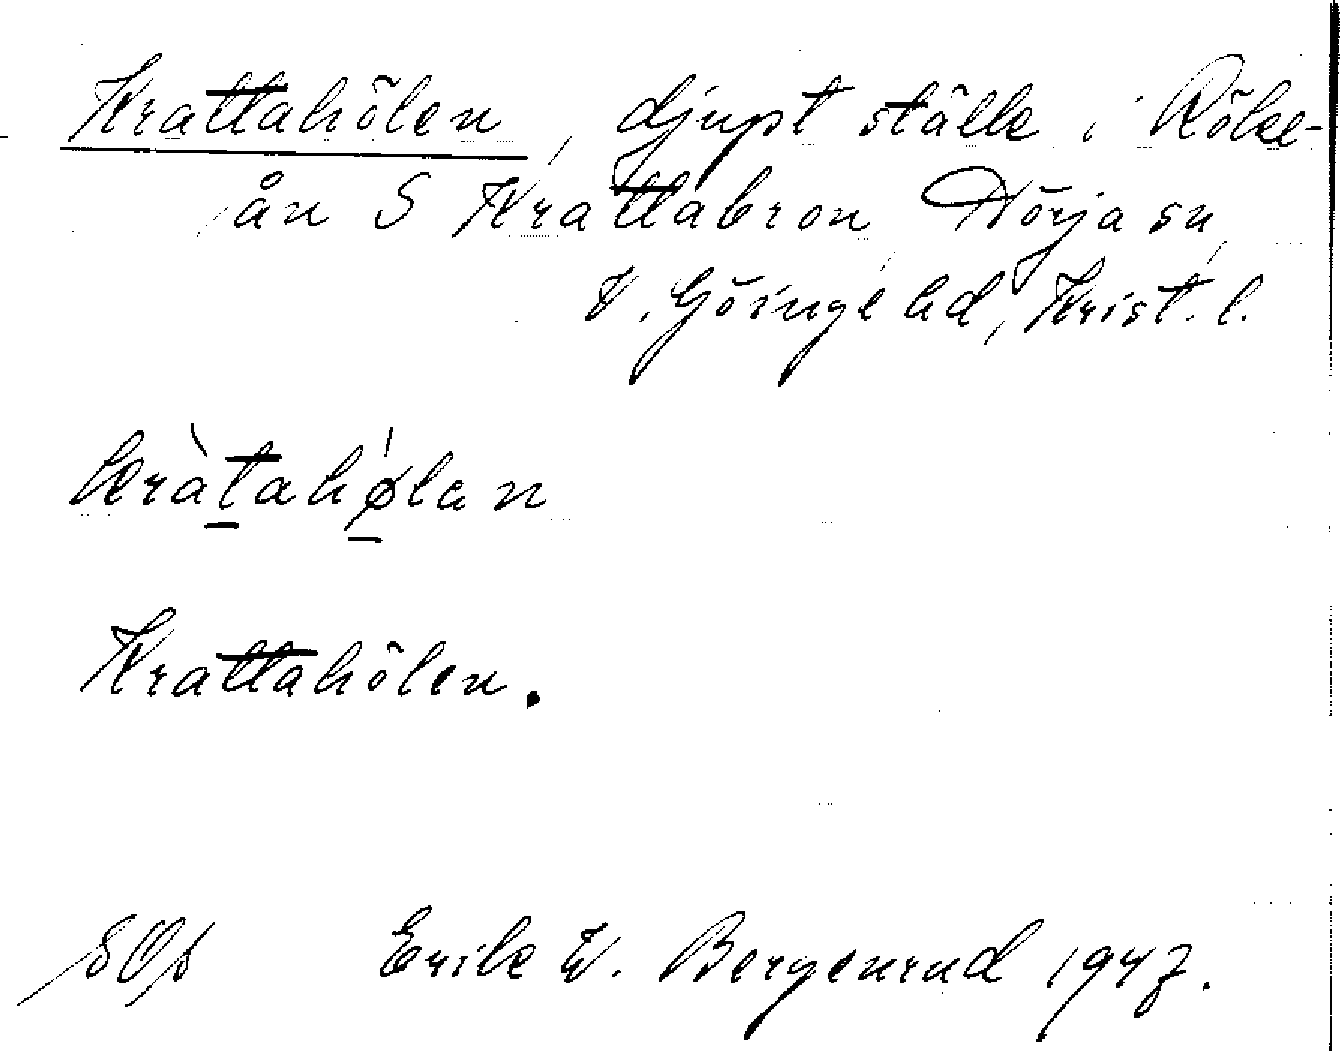 Krattahölen, djupt ställe i Röke-
ån S Krattabron, Nörja sn,
V. Göinge hd, Krist. l.
kràtahø̀lan
Krattahölen.
Erik W. Bergenrud 1947.